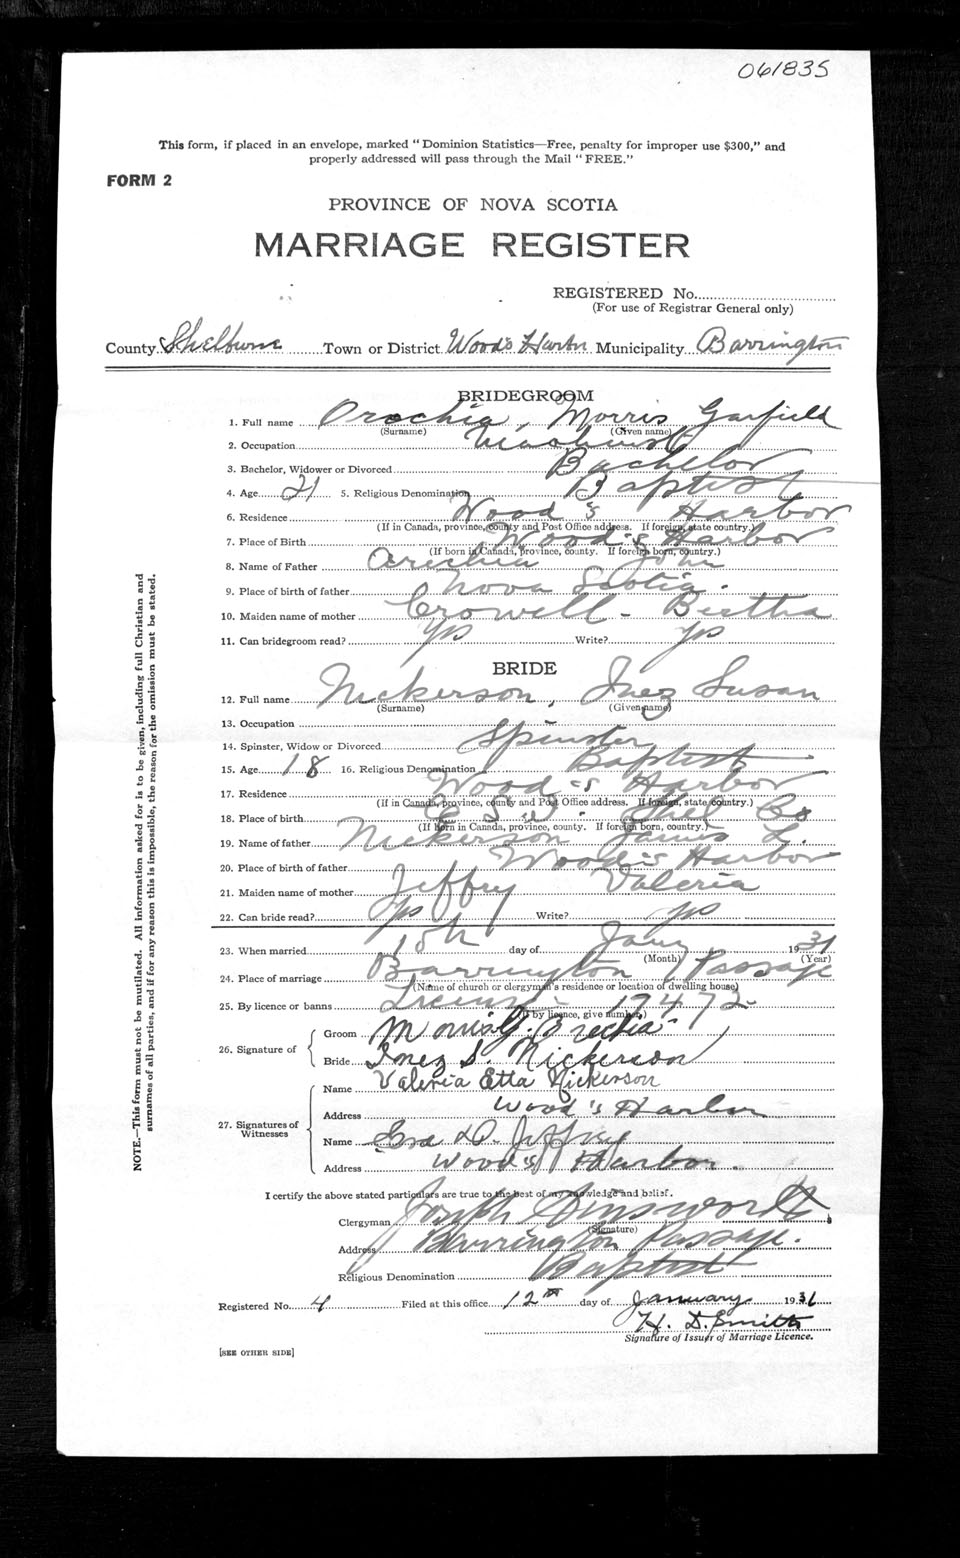 061835
This form, if placed in an envelope, marked "Dominion Statistics—Free, penalty for improper use $300," and
properly addressed will pass through the Mail "FREE."
FORM 2
PROVINCE OF NOVA SCOTIA
MARRIAGE REGISTER
REGISTERED No.
(For use of Registrar General only)
County Shelburne Town or District Wood's Harbor Municipality Barrington
BRIDEGROOM
1. Full name Orechia, Morris Garfield
(Surname) (Given name)
2. Occupation Machinist
3. Bachelor, Widower or Divorced Bachelor
4. Age 21 5. Religious Denomination Baptist
6. Residence Wood's Harbor
(If in Canada, province, county and Post Office address. If foreign, state country.)
7. Place of Birth Wood's Harbor
(If born in Canada, province, county. If foreign born, country.)
8. Name of Father Orechia John
9. Place of birth of father Nova Scotia.
10. Maiden name of mother Crowell - Bertha
11. Can bridegroom read? yes Write? yes
BRIDE
12. Full name Nickerson, Inez Susan
(Surname) (Given name)
13. Occupation
14. Spinster, Widow or Divorced Spinster
15. Age 18 16. Religious Denomination Baptist
17. Residence Wood's Harbor
(If in Canada, province, county and Post Office address. If foreign, state country.)
18. Place of birth Shel Co
(If Born in Canada, province, county. If foreign born, country.)
19. Name of father Nickerson James L.
20. Place of birth of father Wood's Harbor
21. Maiden name of mother Jeffry Valeria
22. Can bride read? yes Write? yes
23. When married 10th day of Jany 1931
(Month) (Year)
24. Place of marriage Barrington Passage
(Name of church or clergyman's residence or location of dwelling house)
25. By licence or banns License - 17472
(If by licence, give number.)
26. Signature of
Groom Morris G. Orechia
Bride Inez S. Nickerson
27. Signatures of Witnesses
Name Valeria Etta Nickerson
Address Wood's Harbor
Name D. Jeffrey
Address Wood's Harbor.
I certify the above stated particulars are true to the best of my knowledge and belief.
Clergyman Joseph Ainsworth
(Signature)
Address Barrington Passage.
Religious Denomination Baptist
Registered No. 4 Filed at this office 12th day of January 1931
H. D. Smith
Signature of Issuer of Marriage Licence.
[SEE OTHER SIDE]
NOTE.—This form must not be mutilated. All information asked for is to be given, including full Christian and
surnames of all parties, and if for any reason this is impossible, the reason for the omission must be stated.